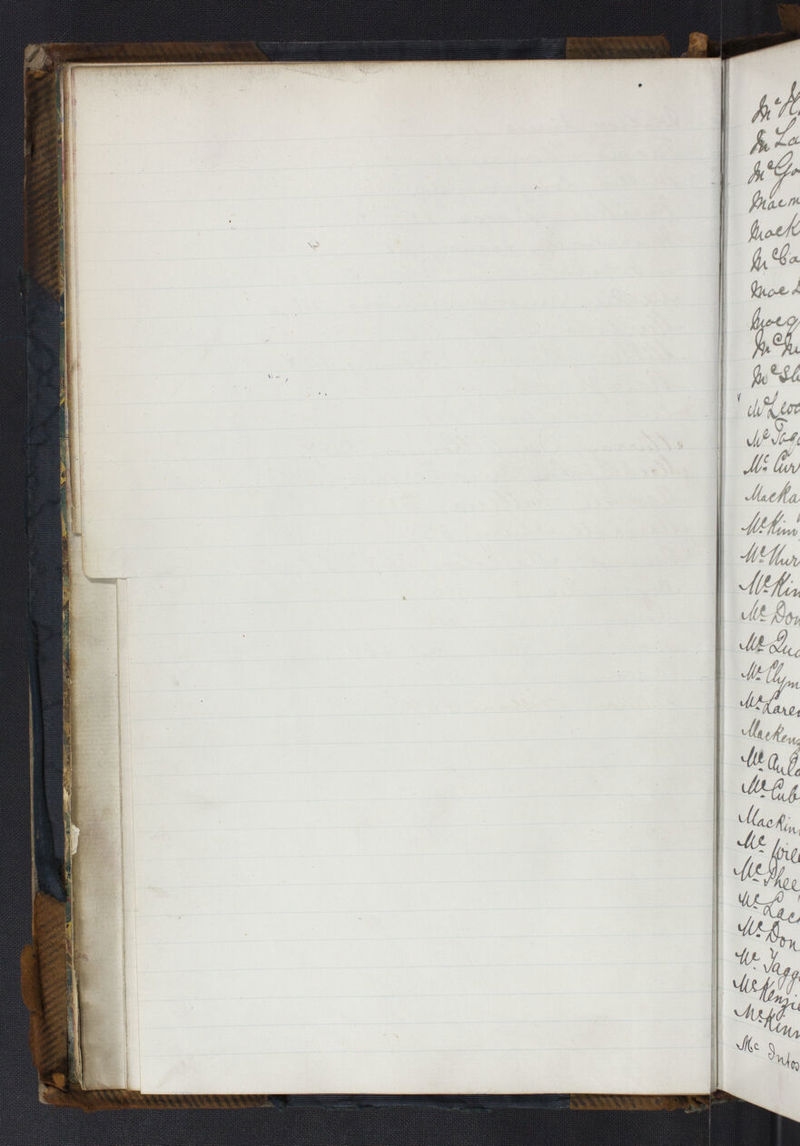 Mc
Mc La
Mc Go
Macm
Mack
Mc Ca
Mac
Macg
Mc
Mc Sh
McLeod
Mc Tag
Mc Cur
Macka
McKim
McMur
McKin
Mc Don
Mc Qua
Mc Clym
McLaren
Mackenz
Mc Aula
Mc Cub
Mackin
Mc Will
McPhee
McLac
McDon
Mc Tagg
McKenzie
McKinn
Mc Intos